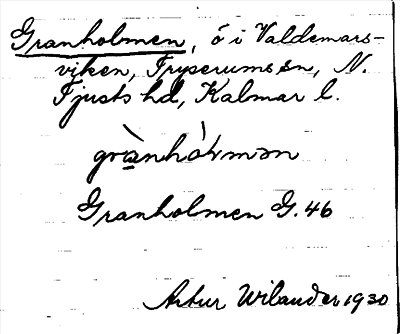 Granholmen, ö i Valdemars-
viken, Tryserums sn, N.
Tjusts hd, Kalmar l.
grànhòlmən
Granholmen G. 46
Artur Wilander 1930